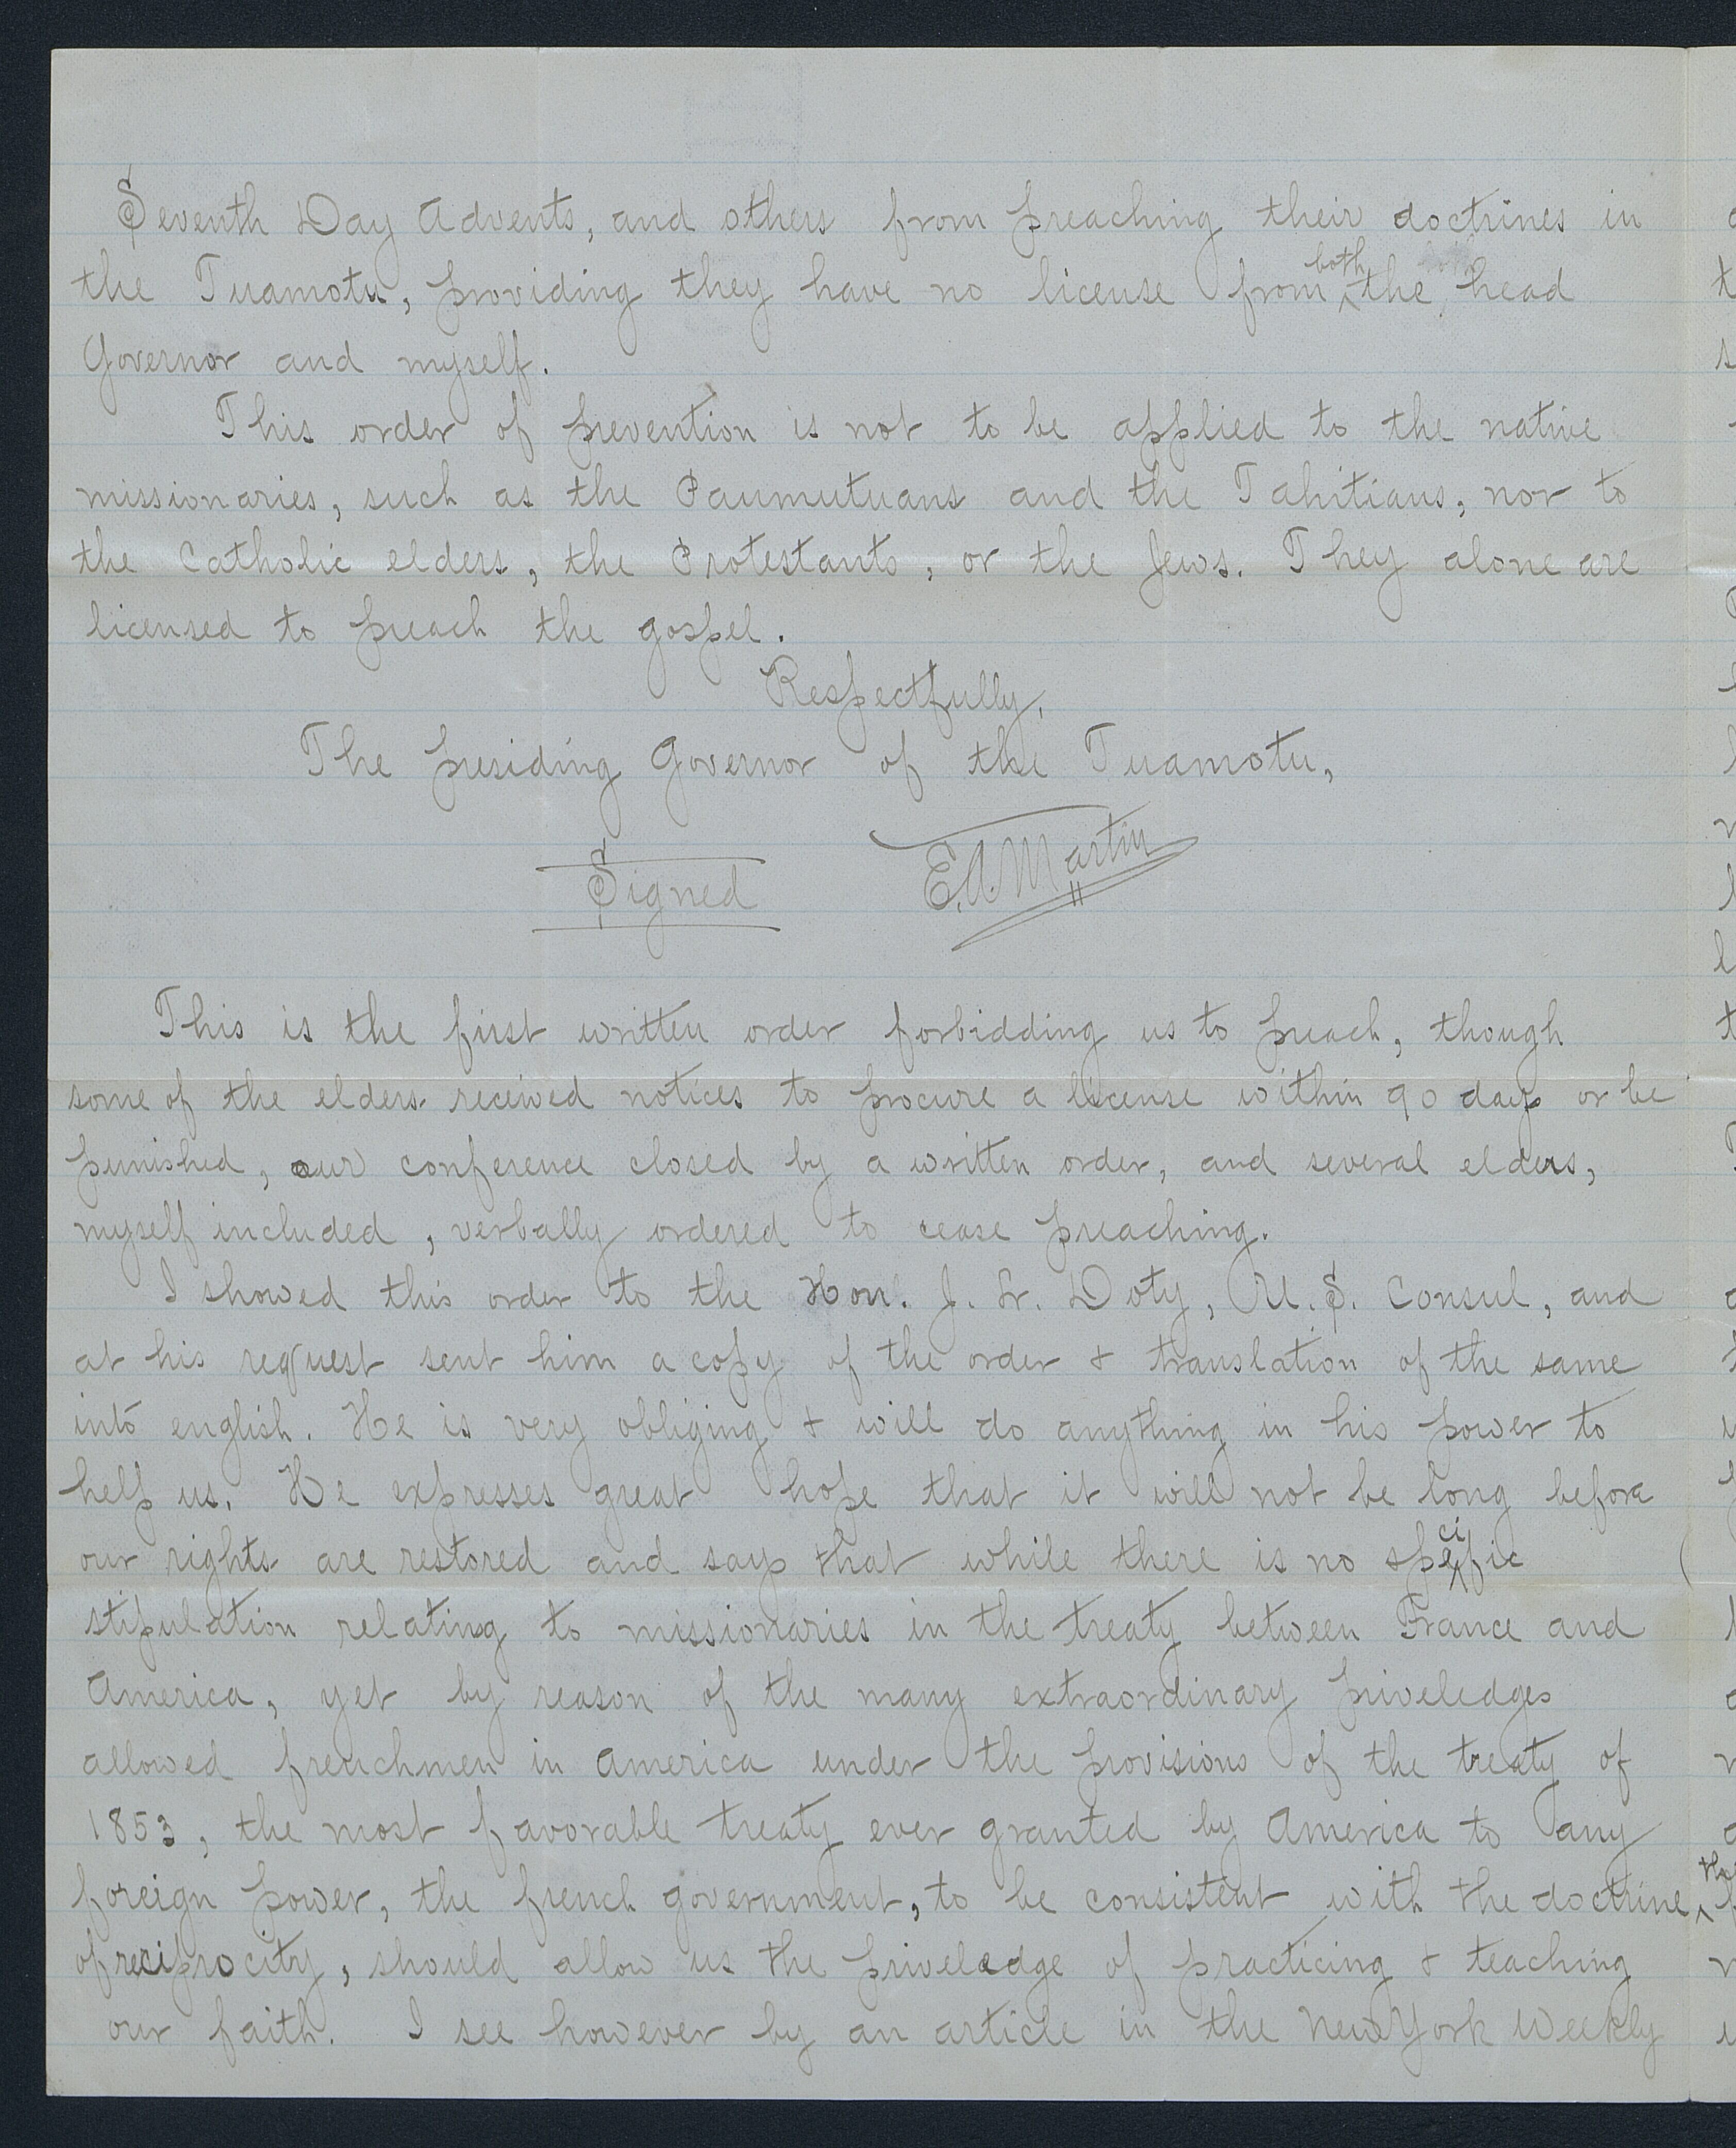 Seventh Day Advents, and others from preaching their doctrines in
the Tuamotu, providing they have no license from both the head
Governor and myself.
This order of prevention is not to be applied to the native
missionaries, such as the Paumutuans and the Tahitians, nor to
the Catholic elders, the Protestants, or the Jews. They alone are
licensed to preach the gospel.
Respectfully,
The presiding Governor of the Tuamotu,
Signed E.A. Martin
This is the first written order forbidding us to preach, though
some of the elders received notices to procure a license within 90 days or be
punished, our conference closed by a written order, and several elders,
myself included, verbally ordered to cease preaching.
I showed this order to the Hon. J. Lr. Doty, U.S. Consul, and
at his request sent him a copy of the order & translation of the same
into english. He is very obliging & will do anything in his power to
help us. He expresses great hope that it will not be long before
our rights are restored and says that while there is no specific
stipulation relating to missionaries in the treaty between France and
America, yet by reason of the many extraordinary priveledges
allowed frenchmen in America under the provisions of the treaty of
1853, the most favorable treaty ever granted by America to any
foreign power, the french government, to be consistent with the doctrine
of reciprocity, should allow us the priveledge of practicing & teaching
our faith. I see however by an article in the New York Weekly